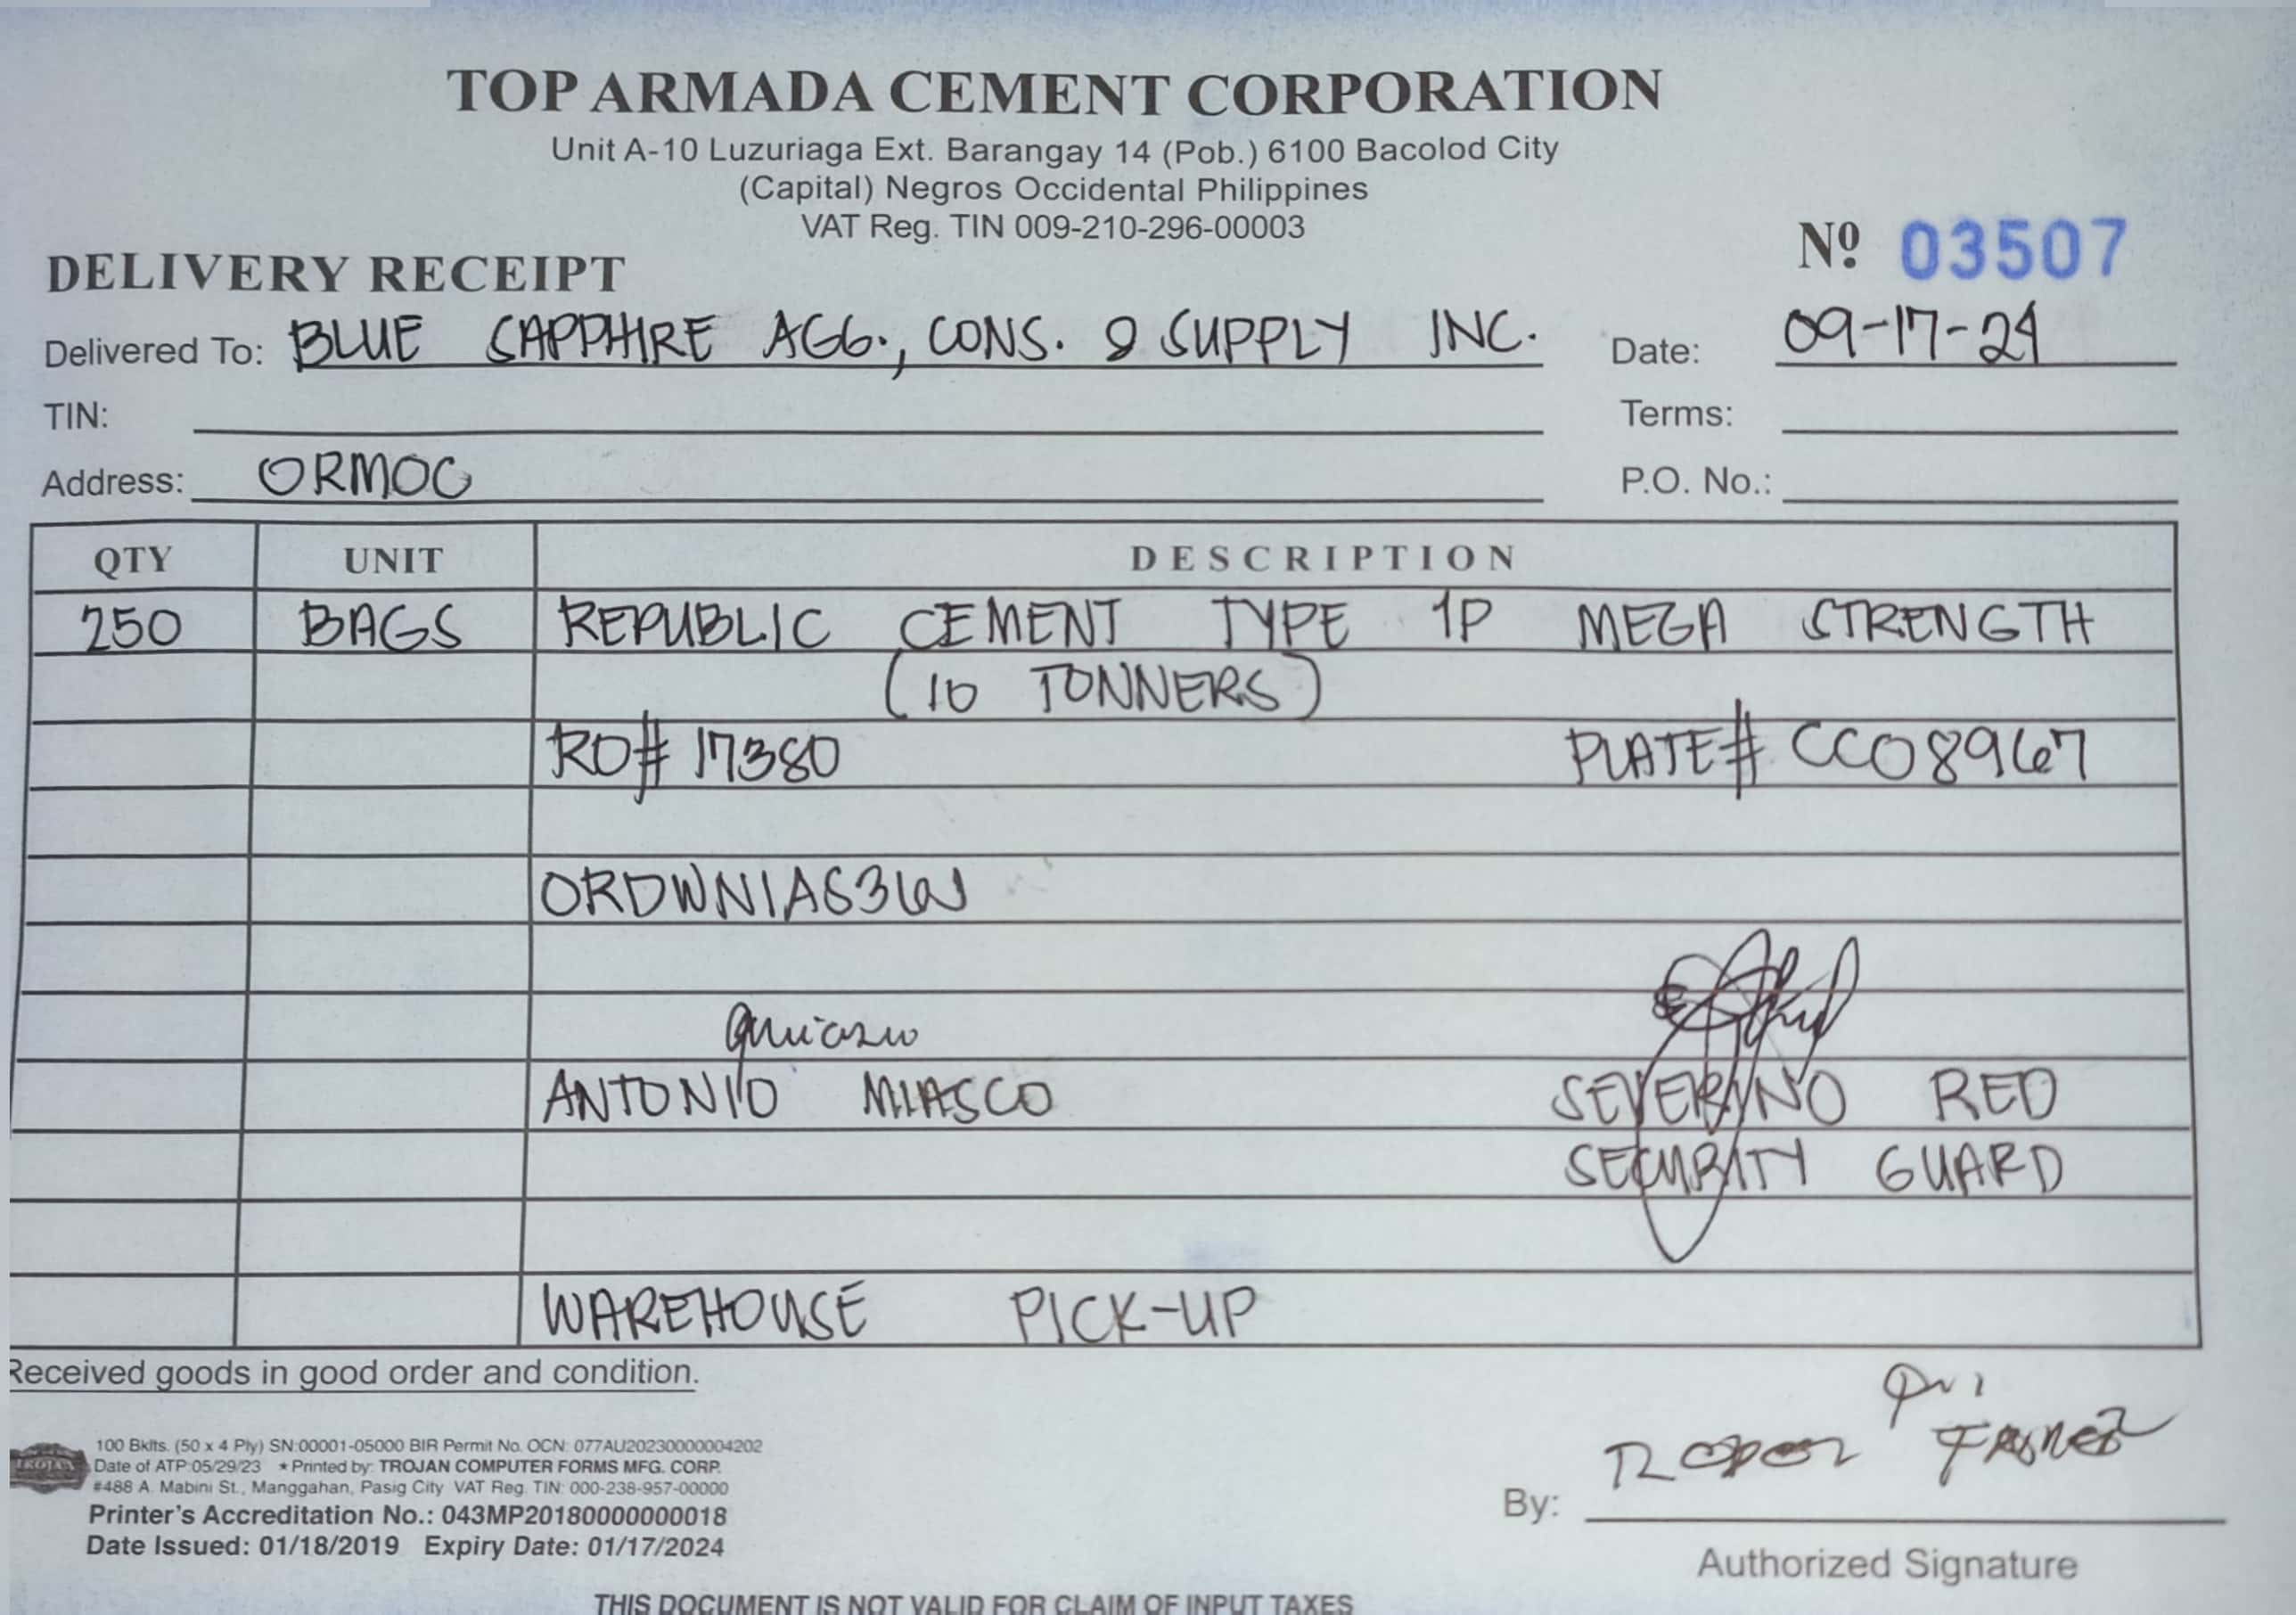 TOP ARMADA CEMENT CORPORATION
Unit A-10 Luzuriaga Ext. Barangay 14 (Pob.) 6100 Bacolod City
(Capital) Negros Occidental Philippines
VAT Reg. TIN 009-210-296-00003
Nº 03507
DELIVERY RECEIPT
Delivered To: BLUE SAPPHIRE AGG., CONS. & SUPPLY INC. Date: 09-17-24
TIN: Terms:
Address: ORMOC P.O. No.:
QTY UNIT DESCRIPTION
250 BAGS REPUBLIC CEMENT TYPE 1P MEGA STRENGTH
(10 TONNERS)
RO# 17380 PLATE# CCO8967
ANTONIO MIASCO SEVERINO RED
SECURITY GUARD
WAREHOUSE PICK-UP
Received goods in good order and condition.
100 Bklts. (50 x 4 Ply) SN:00001-05000 BIR Permit No. OCN: 077AU20230000004202
Date of ATP:05/29/23 * Printed by: TROJAN COMPUTER FORMS MFG. CORP.
#488 A. Mabini St., Manggahan, Pasig City VAT Reg. TIN: 000-238-957-00000
Printer's Accreditation No.: 043MP20180000000018
Date Issued: 01/18/2019 Expiry Date: 01/17/2024
By:
Authorized Signature
THIS DOCUMENT IS NOT VALID FOR CLAIM OF INPUT TAXES